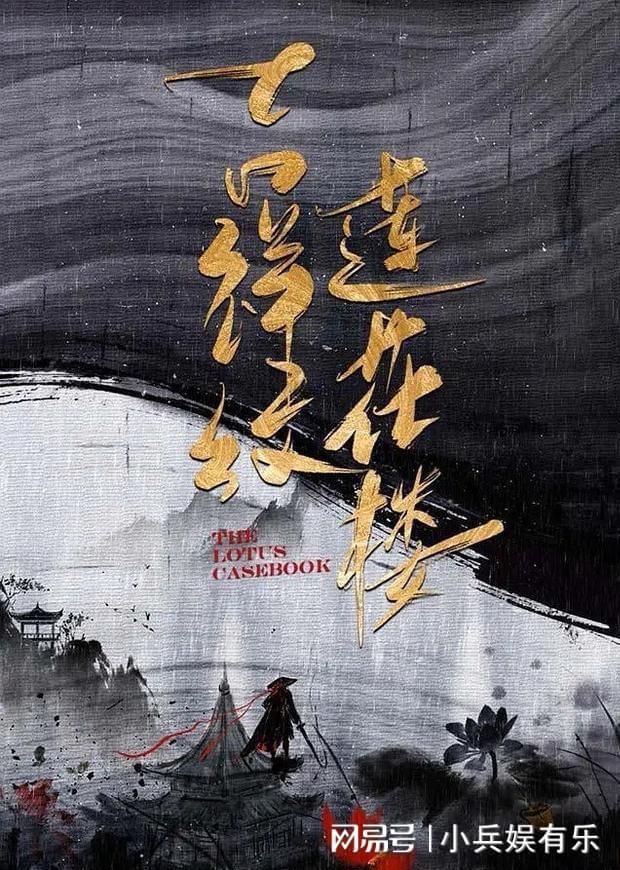 吉祥纹
莲花楼
THE
LOTUS
CASEBOOK
网易号 | 小兵娱有乐